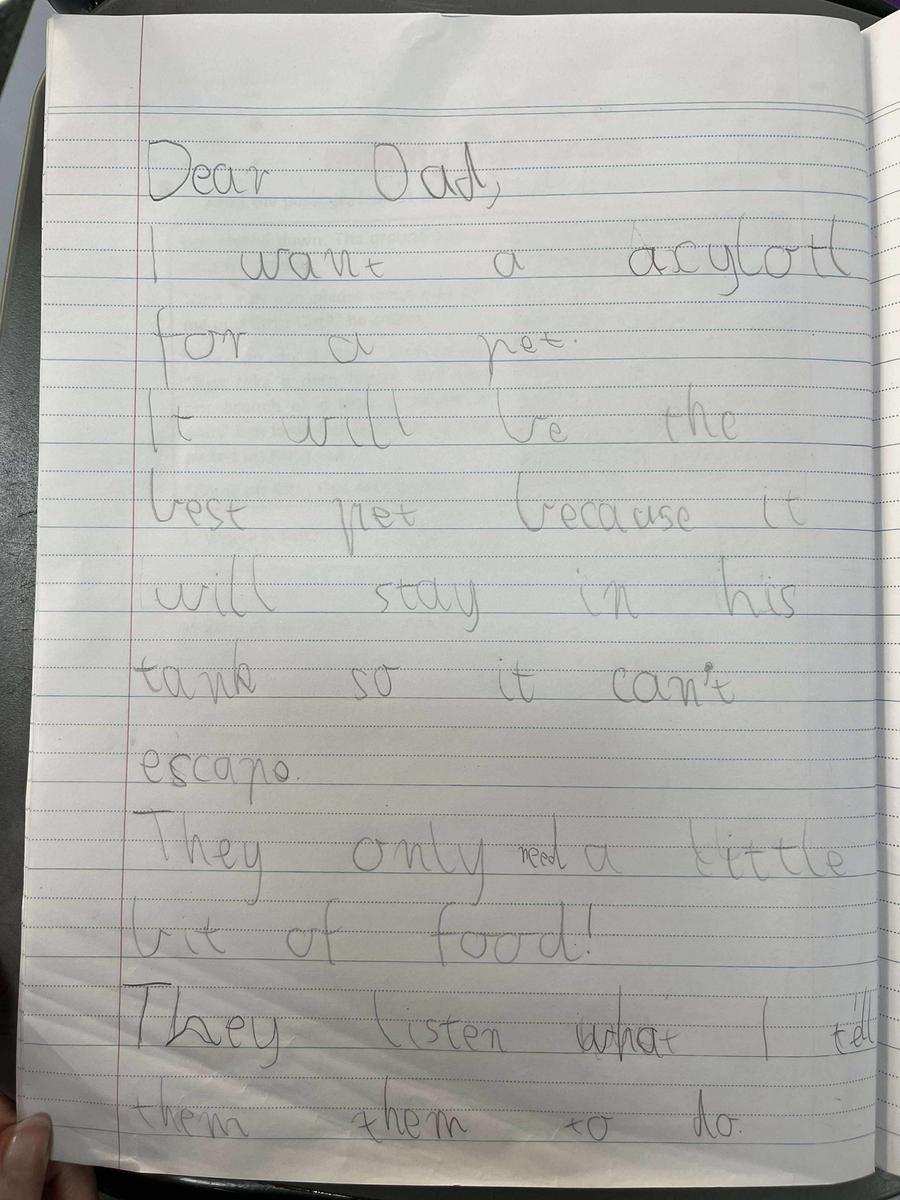 Dear Dad,
I want a axylotl
for a pet.
It will be the
best pet because it
will stay in his
tank so it can't
escape.
They only need a little
bit of food!
They listen what I tell
them them to do.